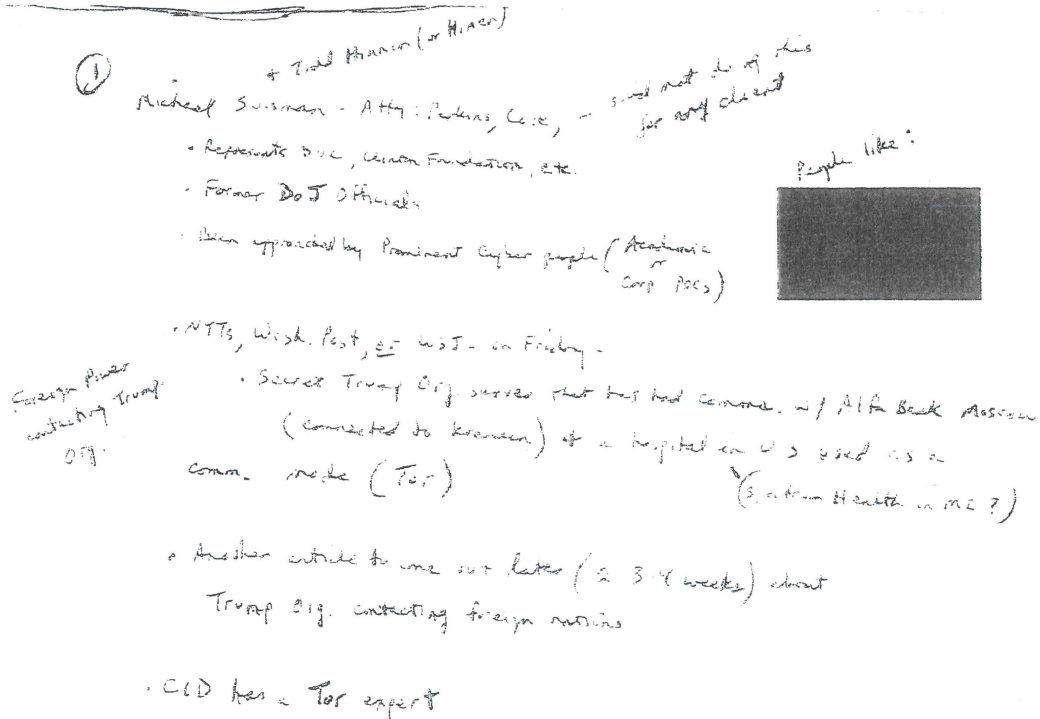 ①
+ Todd (or Hinnen)
Michael Sussman - Atty: Perkins, Coie, - said not do of this
for any client
• Represents DNC, Clinton Foundation, etc.
• Former DoJ Officials
• Been approached by Prominent Cyber people (Academic
or
Corp POCs)
People like:
• NYTs, Wash. Post, or WSJ - on Friday -
• Secret Trump Org. server that has had comms. w/ Alfa Bank Moscow
(connected to Kremlin) + a hospital in US used as a
comm. node (Tor)
(Spectrum Health in MI ?)
Foreign Power
contacting Trump
Org.
• Another article to come out later (≈ 3-4 weeks) about
Trump Org. contacting foreign nations
• CID has a Tor expert